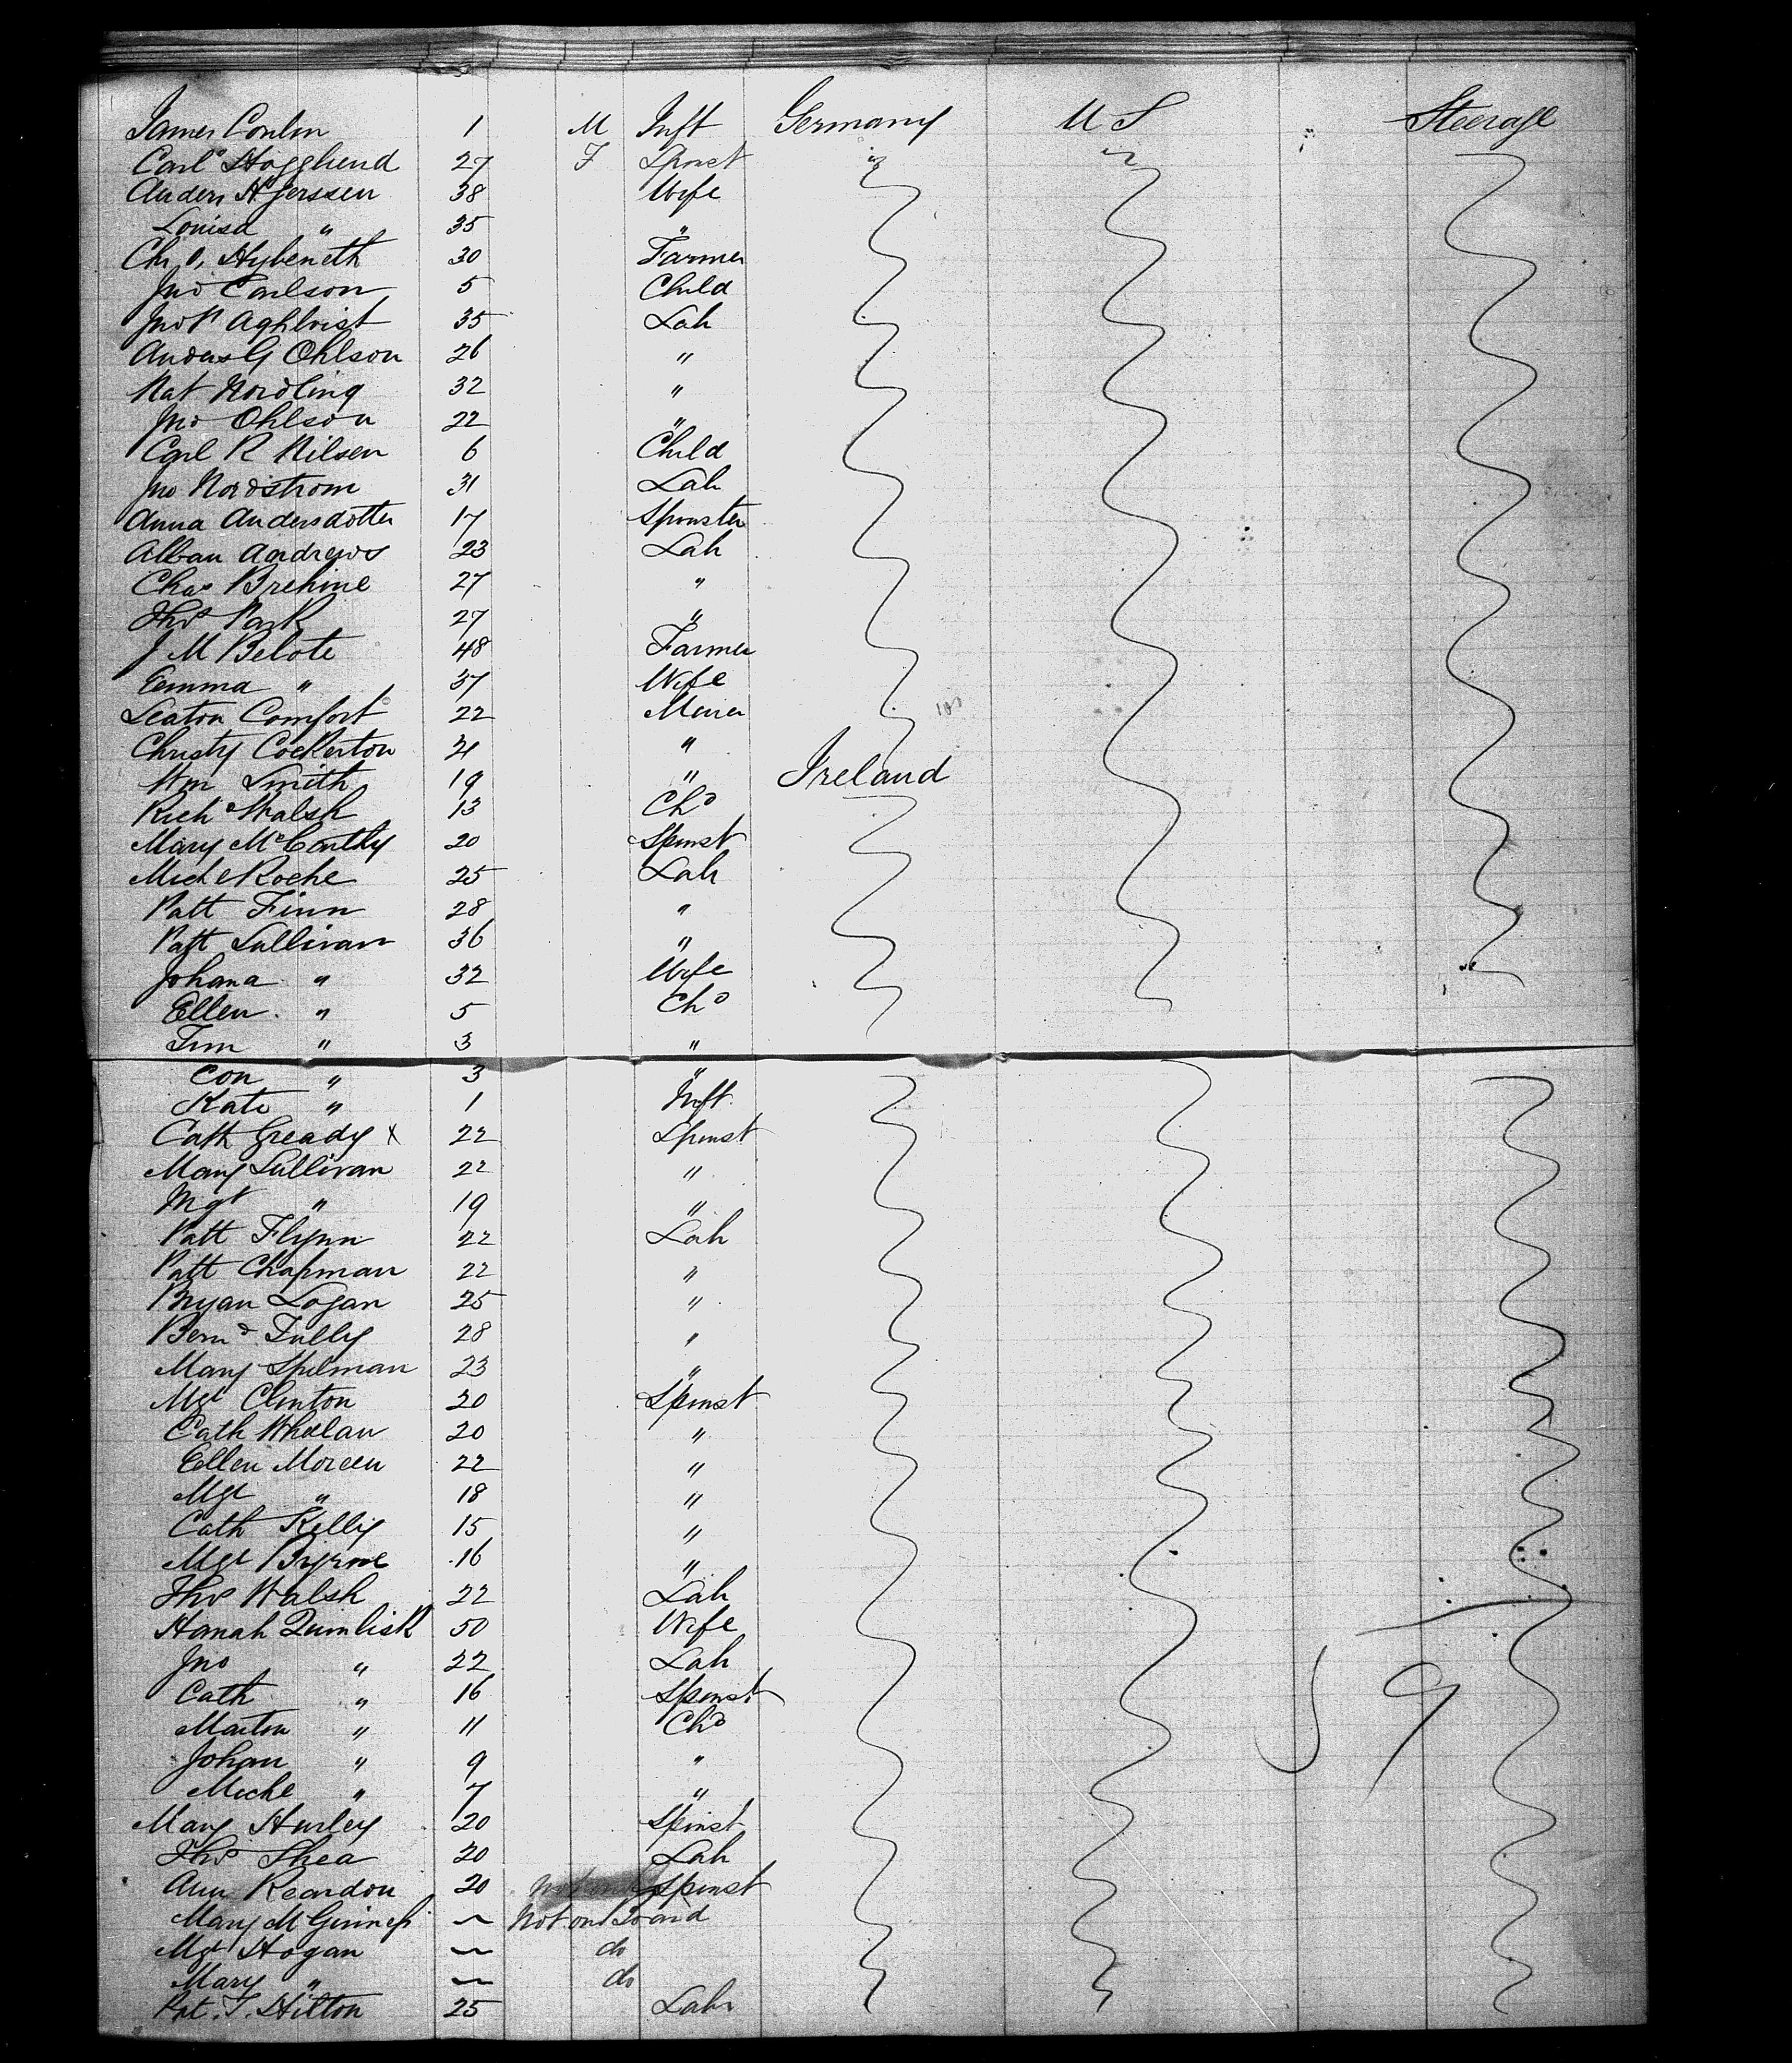 James Conlin 1 M Inft Germany U S Steerage
Carl Hogglund 27 F Spinst " "
Anders Hjerssen 38 Wife
Louisa " 35 "
Chr O, Hybeneth 30 Farmer
Jno Carlson 5 Child
Jno P Aghlvist 35 Lab
Anders G Ohlson 26 "
Nat Nordling 32 "
Jno Ohlson 22 "
Carl R Nilsen 6 Child
Jno Nordstrom 31 Lab
Anna Andersdotter 17 Spinster
Alban Andrews 23 Lab
Chas Brehine 27 "
Thos Park 27 "
J M Belote 48 Farmer
Emma " 37 Wife
Seaton Comfort 22 Miner
Christy Cockerton 21 "
Wm Smith 19 " Ireland
Richd Walsh 13 Chd
Mary McCarthy 20 Spinst
Michl Roche 25 Lab
Patt Finn 28 "
Patt Sullivan 36 "
Johana " 32 Wife
Ellen " 5 Chd
Tim " 3 "
Con " 3 "
Kate " 1 Inft.
Cath Gready x 22 Spinst
Mary Sullivan 22 "
Mgt " 19 "
Patt Flynn 22 Lab
Patt Chapman 22 "
Bryan Logan 25 "
Bernd Tully 28 "
Mary Spelman 23 "
Mgt Clinton 20 Spinst
Cath Whelan 20 "
Ellen Moreen 22 "
Mgt " 18 "
Cath Kelly 15 "
Mgt Byrne 16 "
Thos Walsh 22 Lab
Hanah Quinlisk 50 Wife
Jno " 22 Lab
Cath " 16 Spinst
Martin " 11 Chd
Johan " 9 "
Michl " 7 "
Mary Hurley 20 Spinst
Thos Shea 20 Lab
Ann Reardon 20 Spinst
Mary McGinness — Not on Board
Mgt Hogan — do
Mary " — do
Pat. T. Hilton 25 Lab